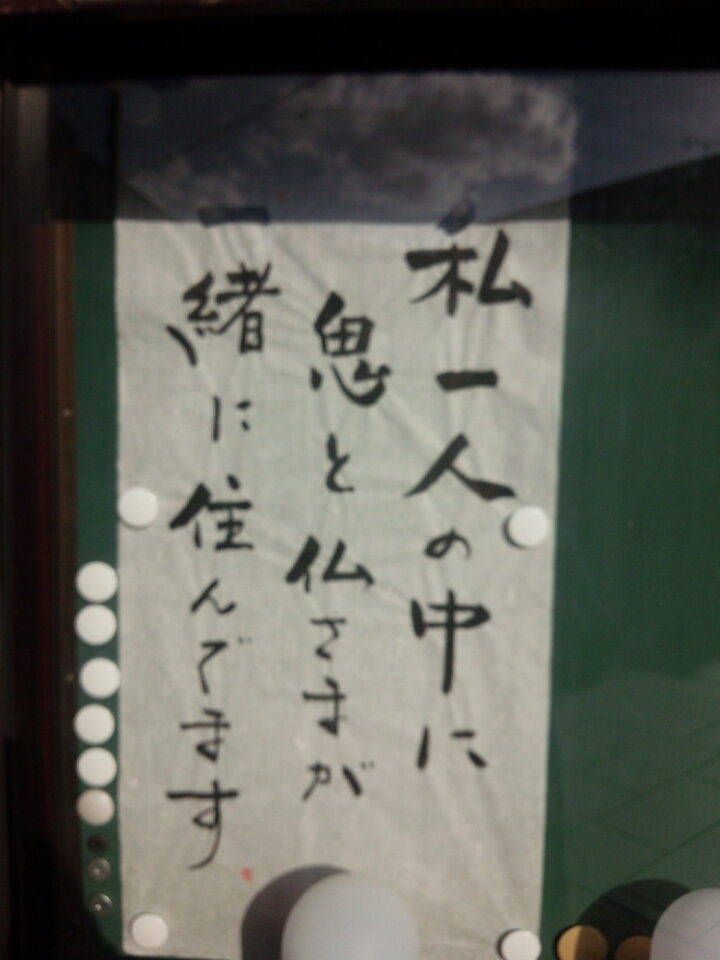 私一人の中に
鬼と仏さまが
一緒に住んでます